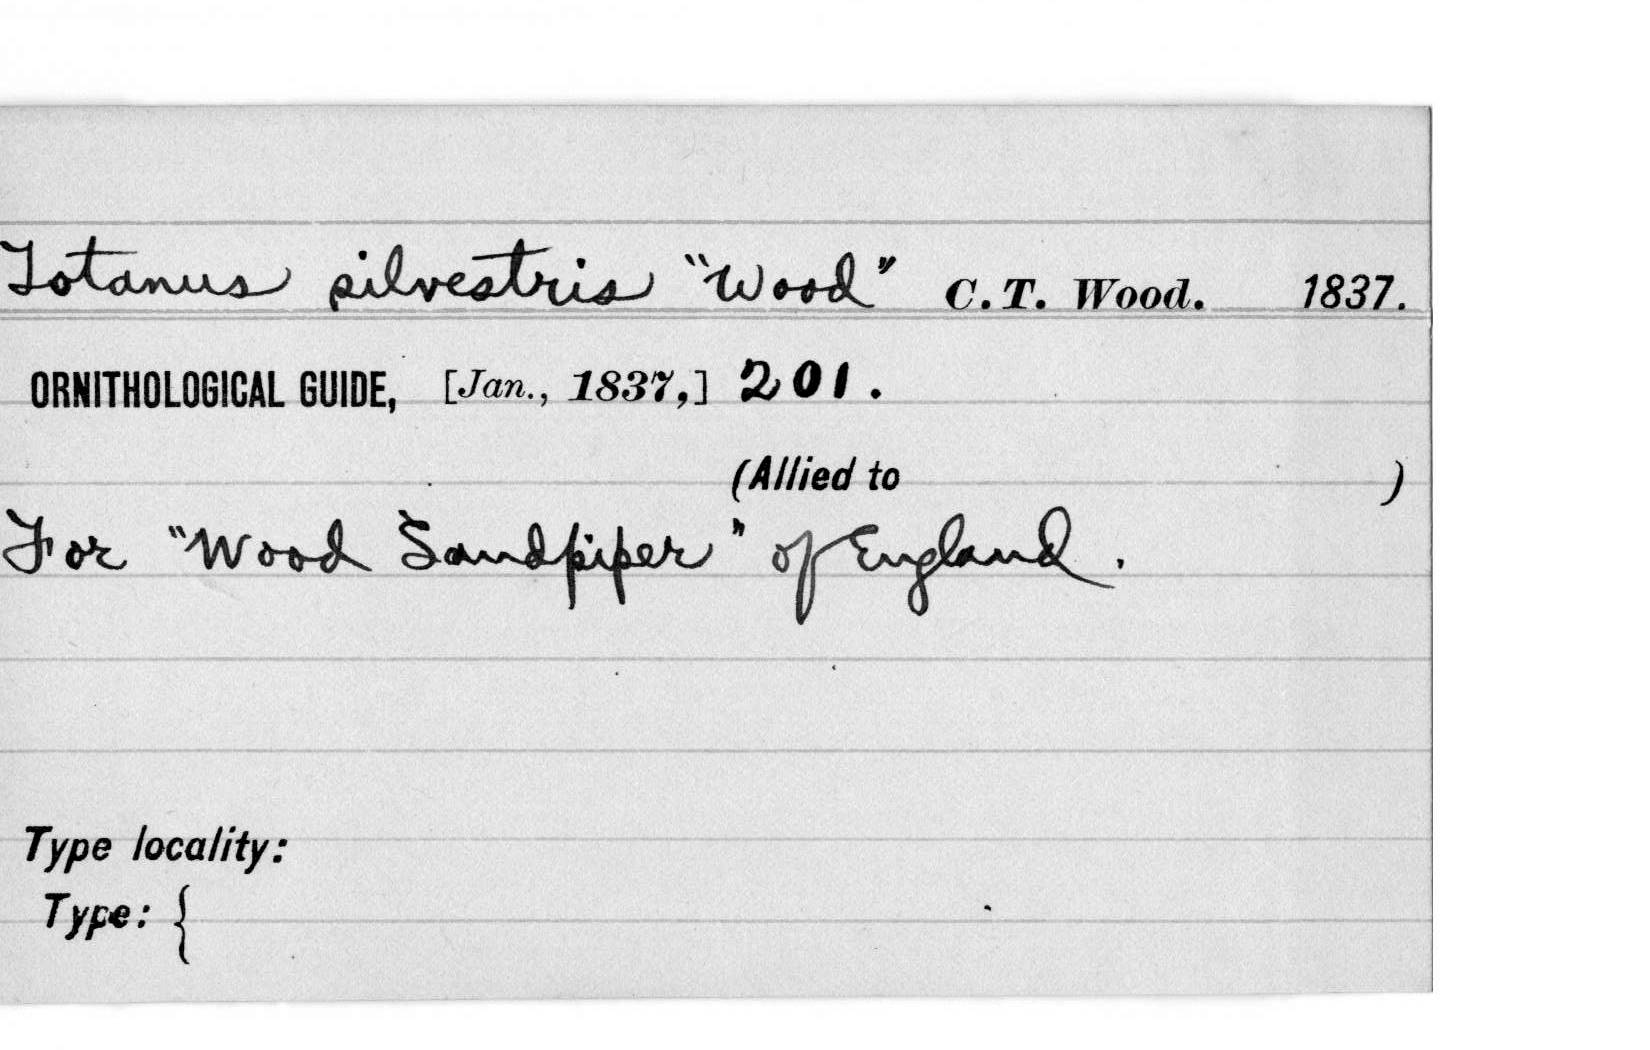 Totanus silvestris "Wood" C. T. Wood. 1837.
ORNITHOLOGICAL GUIDE, [Jan., 1837,] 201.
(Allied to )
For "Wood Sandpiper" of England.
Type locality:
Type: {